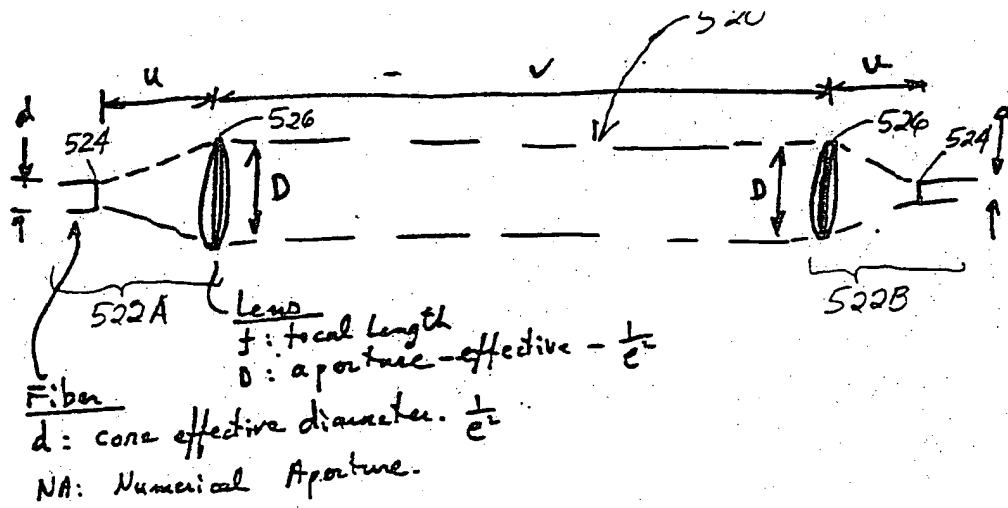 520
u - v u
d 524 526 526 524 d
D D
A
522A 522B
Lens
f: focal Length
D: aperture-effective - 1/e²
Fiber
d: core effective diameter. 1/e²
NA: Numerical Aperture.